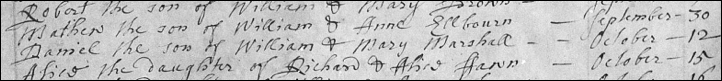 Robert the son of William & Mary Brown
Mathew the son of William & Anne Ellbourn — September — 30
Daniel the son of William & Mary Marshall — October — 12
Alice the daughter of Richard & Alice Fawn — October — 15